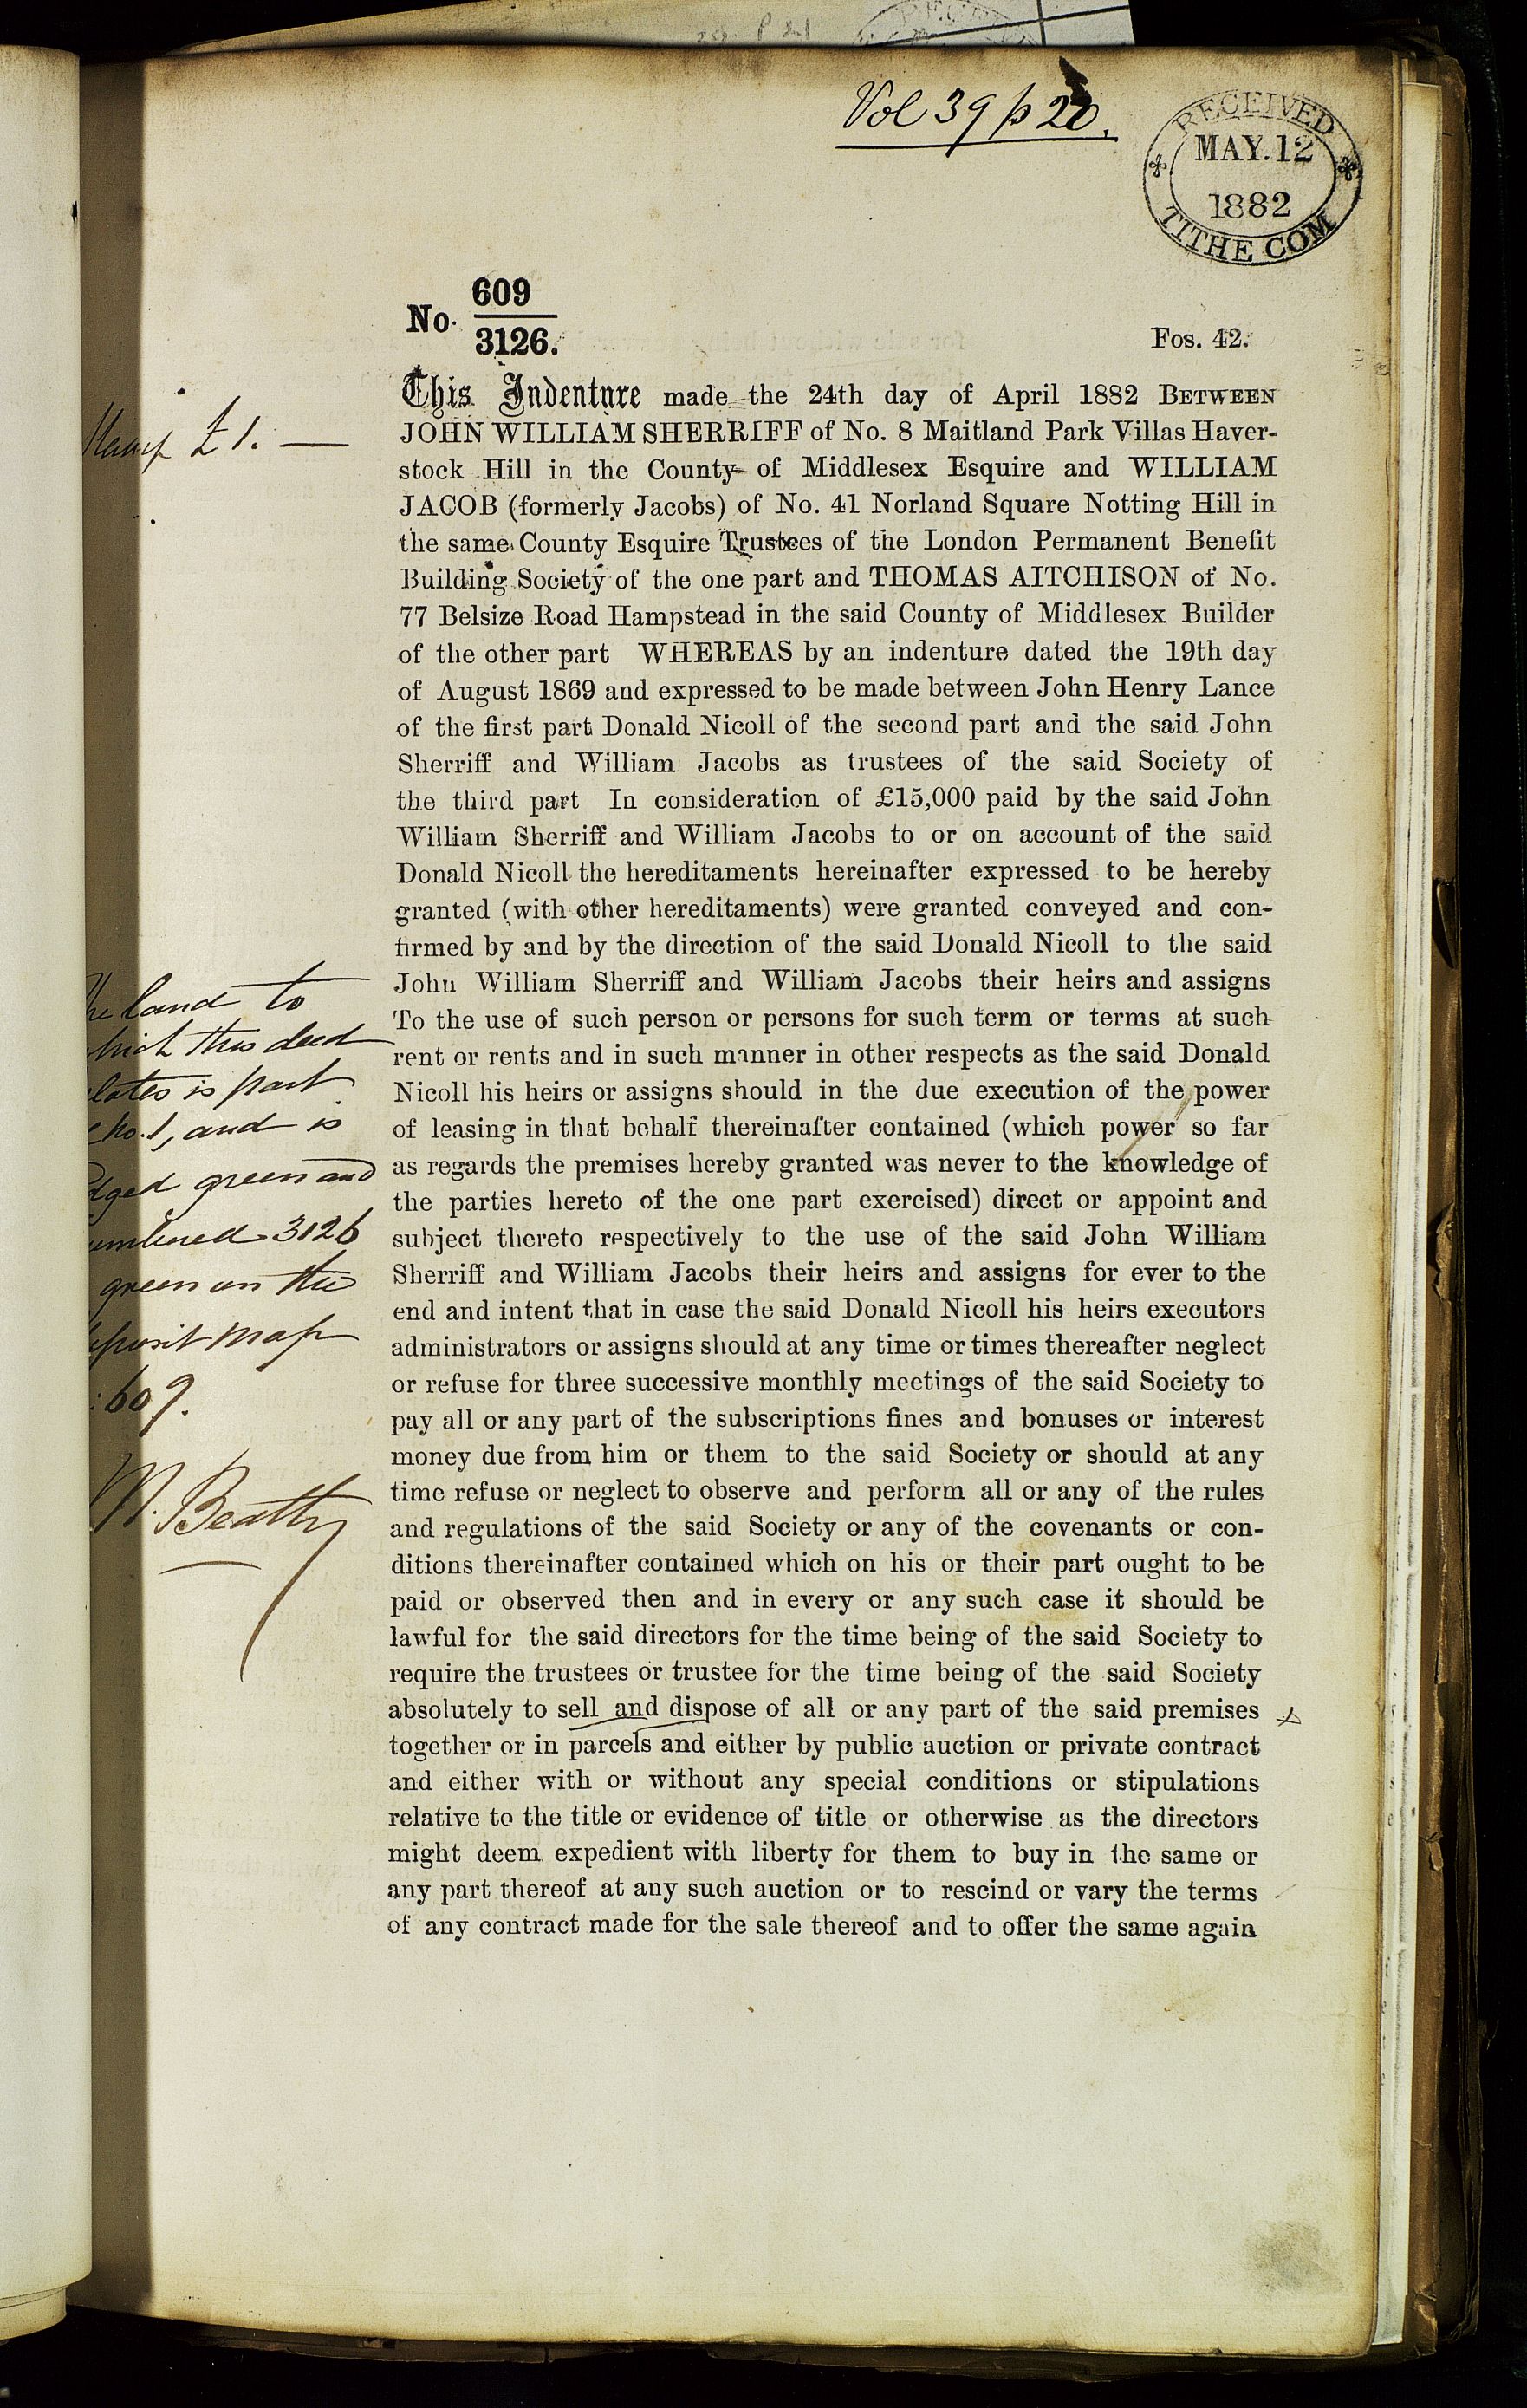 Vol 39 p 20.
RECEIVED
MAY. 12
1882
TITHE COM
No. 609
3126.
Fos. 42.
Stamp £1. —
This Indenture made the 24th day of April 1882 BETWEEN
JOHN WILLIAM SHERRIFF of No. 8 Maitland Park Villas Haver-
stock Hill in the County of Middlesex Esquire and WILLIAM
JACOB (formerly Jacobs) of No. 41 Norland Square Notting Hill in
the same County Esquire Trustees of the London Permanent Benefit
Building Society of the one part and THOMAS AITCHISON of No.
77 Belsize Road Hampstead in the said County of Middlesex Builder
of the other part WHEREAS by an indenture dated the 19th day
of August 1869 and expressed to be made between John Henry Lance
of the first part Donald Nicoll of the second part and the said John
Sherriff and William Jacobs as trustees of the said Society of
the third part In consideration of £15,000 paid by the said John
William Sherriff and William Jacobs to or on account of the said
Donald Nicoll the hereditaments hereinafter expressed to be hereby
granted (with other hereditaments) were granted conveyed and con-
firmed by and by the direction of the said Donald Nicoll to the said
John William Sherriff and William Jacobs their heirs and assigns
To the use of such person or persons for such term or terms at such
rent or rents and in such manner in other respects as the said Donald
Nicoll his heirs or assigns should in the due execution of the power
of leasing in that behalf thereinafter contained (which power so far
as regards the premises hereby granted was never to the knowledge of
the parties hereto of the one part exercised) direct or appoint and
subject thereto respectively to the use of the said John William
Sherriff and William Jacobs their heirs and assigns for ever to the
end and intent that in case the said Donald Nicoll his heirs executors
administrators or assigns should at any time or times thereafter neglect
or refuse for three successive monthly meetings of the said Society to
pay all or any part of the subscriptions fines and bonuses or interest
money due from him or them to the said Society or should at any
time refuse or neglect to observe and perform all or any of the rules
and regulations of the said Society or any of the covenants or con-
ditions thereinafter contained which on his or their part ought to be
paid or observed then and in every or any such case it should be
lawful for the said directors for the time being of the said Society to
require the trustees or trustee for the time being of the said Society
absolutely to sell and dispose of all or any part of the said premises
together or in parcels and either by public auction or private contract
and either with or without any special conditions or stipulations
relative to the title or evidence of title or otherwise as the directors
might deem expedient with liberty for them to buy in the same or
any part thereof at any such auction or to rescind or vary the terms
of any contract made for the sale thereof and to offer the same again
he land to
hich this deed
lates is part
no. 1, and is
dged green and
umbered 3126
green on the
eposit map
609.
M. Beatty